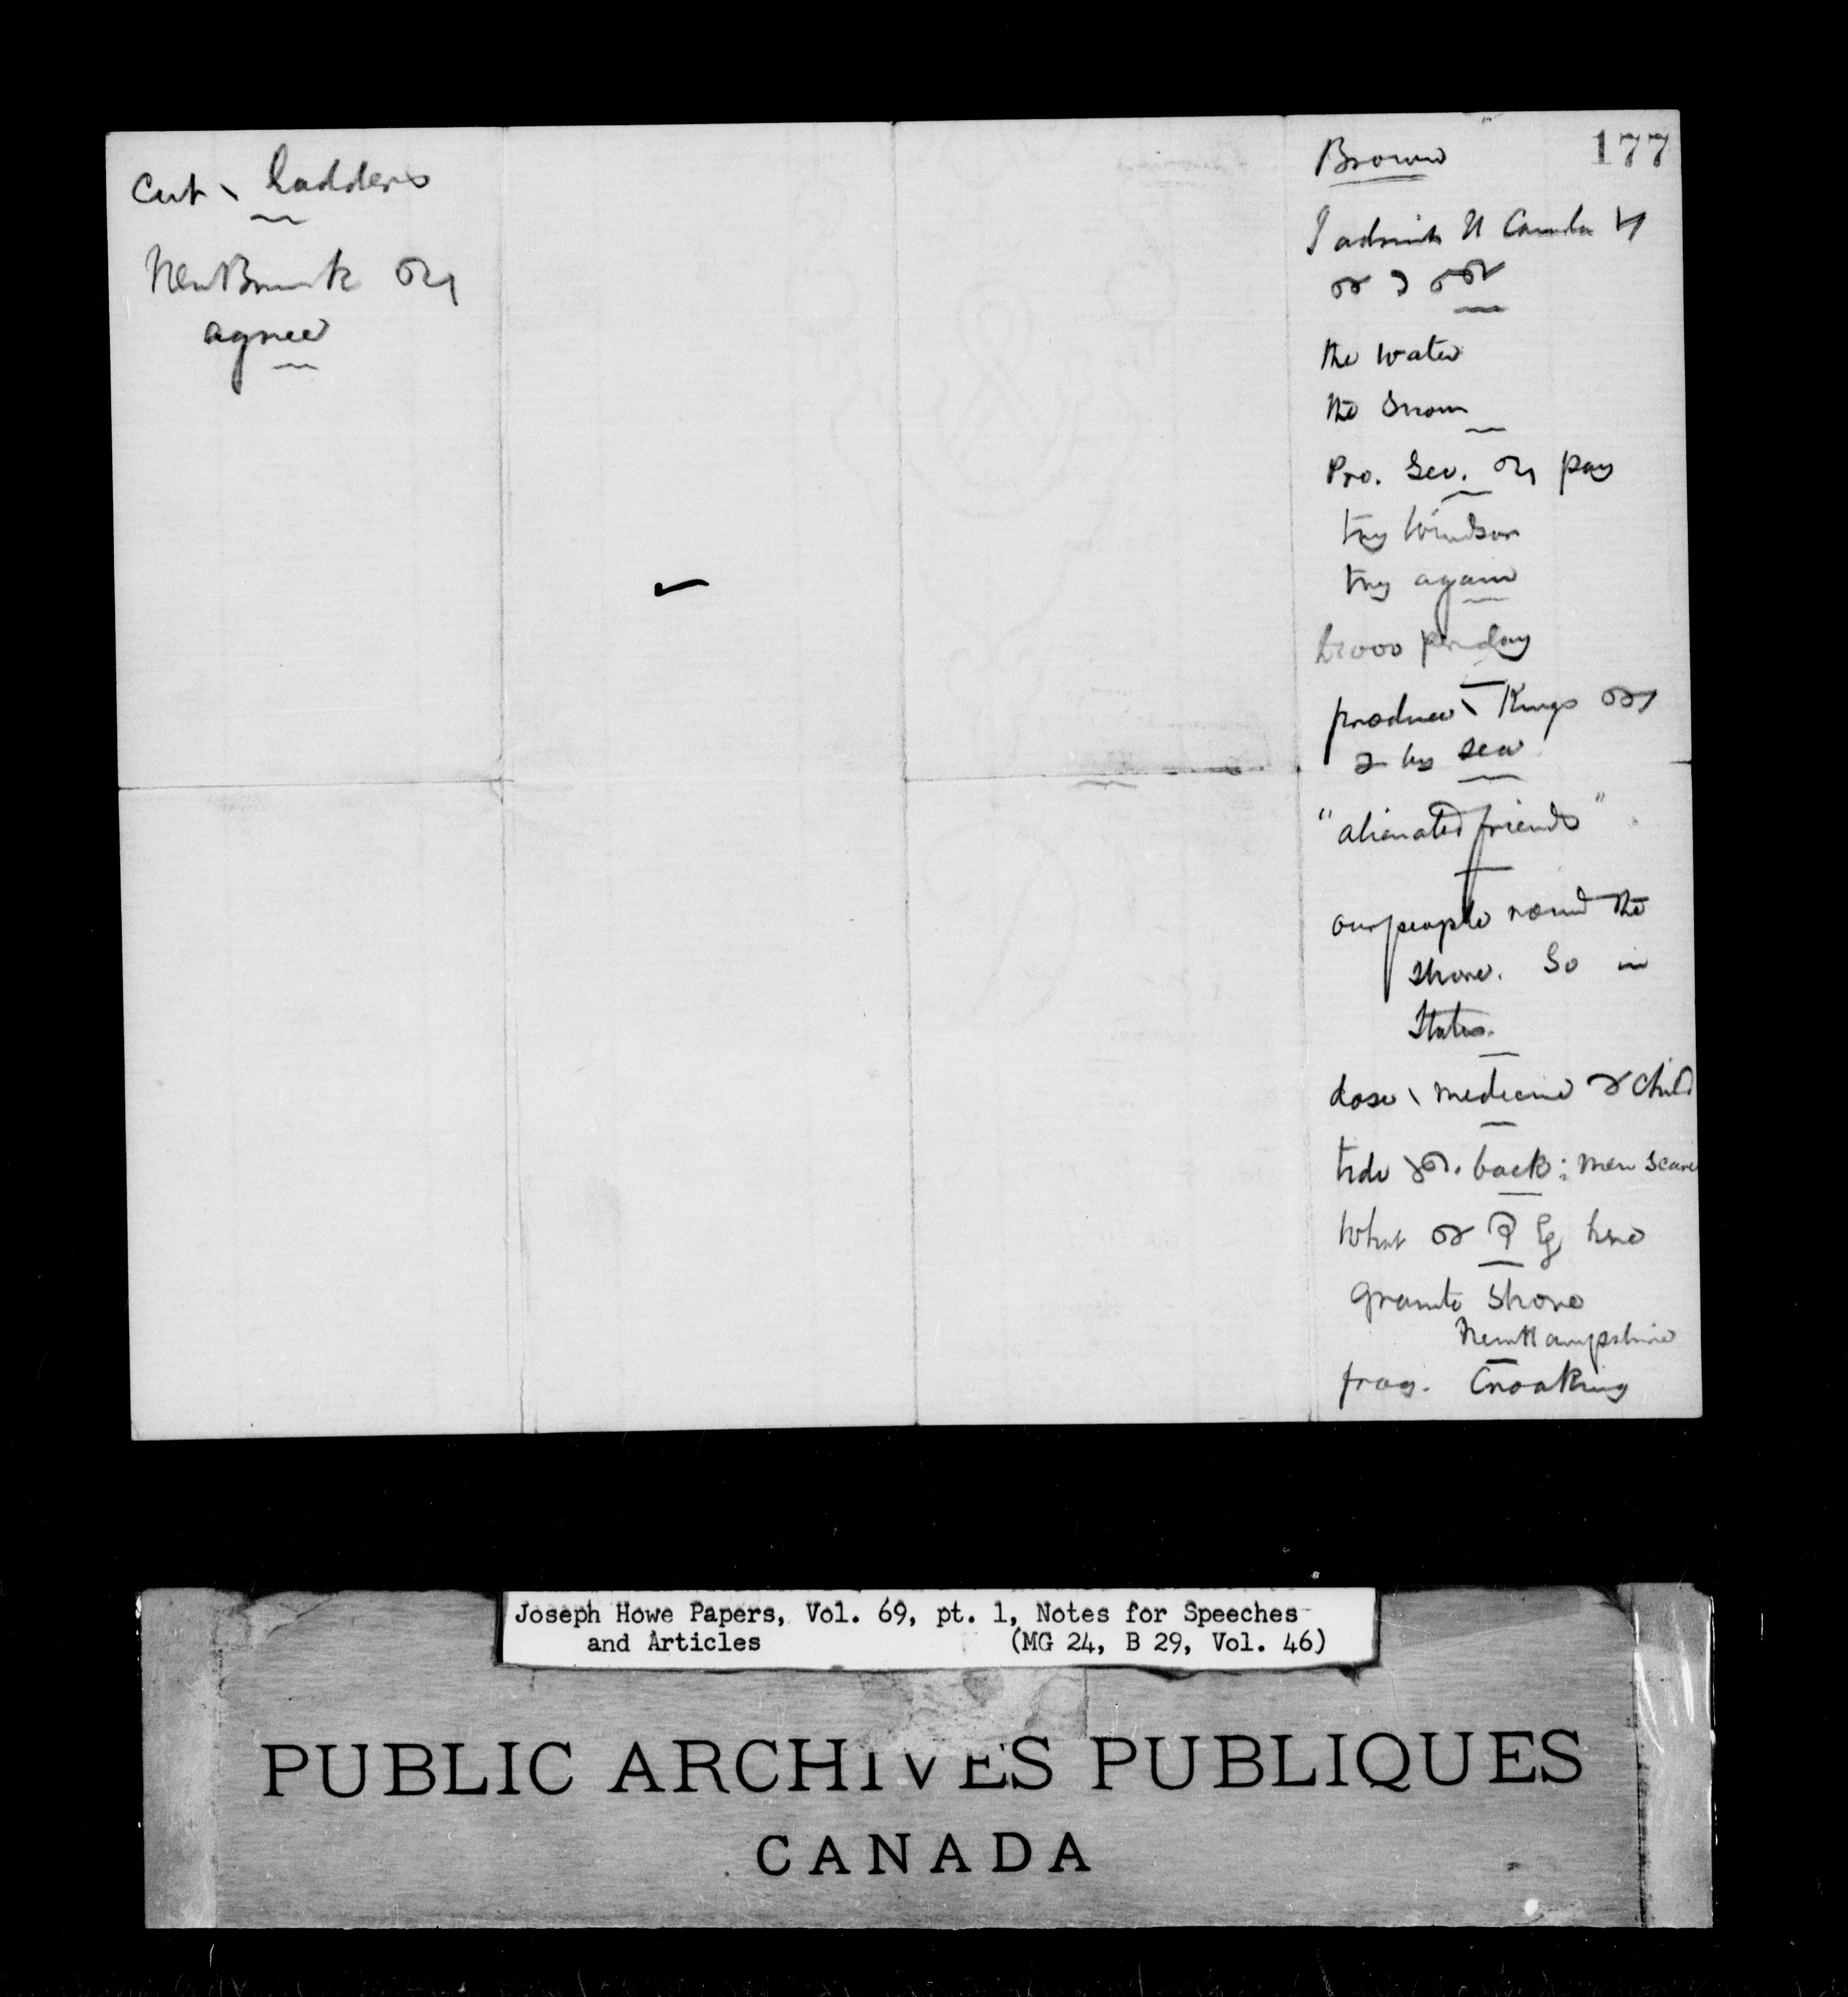 Cut \ ladders
New Brunk
agree
177
Brown
I admit U Canada
the Water
the Snow
Pro. Gov. pay
try Windsor
try again
per day
produce \ Kings
by sea
"alienated friends"
our people round the
Shore. So in
States.
dose \ medicine & Child
tide back: men scarce
What here
Granite Shore
New Hampshire
frog. Croaking
Joseph Howe Papers, Vol. 69, pt. 1, Notes for Speeches
and Articles (MG 24, B 29, Vol. 46)
PUBLIC ARCHIVES PUBLIQUES
CANADA